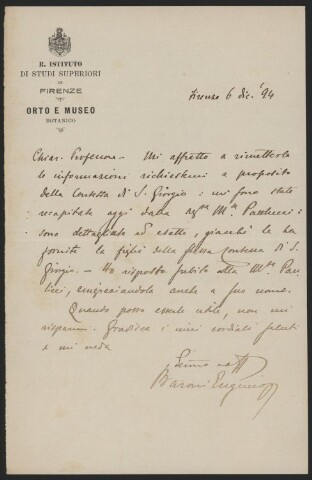 R. ISTITUTO
DI STUDI SUPERIORI
DI
FIRENZE
ORTO E MUSEO
BOTANICO
Firenze 6 dic. '94
Chiar. Professore - Mi affretto a rimetterle
le informazioni richiestemi a proposito
della Contessa di S. Giorgio: mi sono state
recapitate oggi dalla M.sa Paulucci:
sono dettagliate ed esatte, giacchè le ha
fornite la figlia della stessa Contessa di S.
Giorgio. - Ho risposto subito alla M.sa Pau-
lucci, ringraziandola anche a suo nome.
Quando posso esserle utile, non mi
risparmi. Gradisca i miei cordiali saluti
e mi creda
Baroni Eugenio